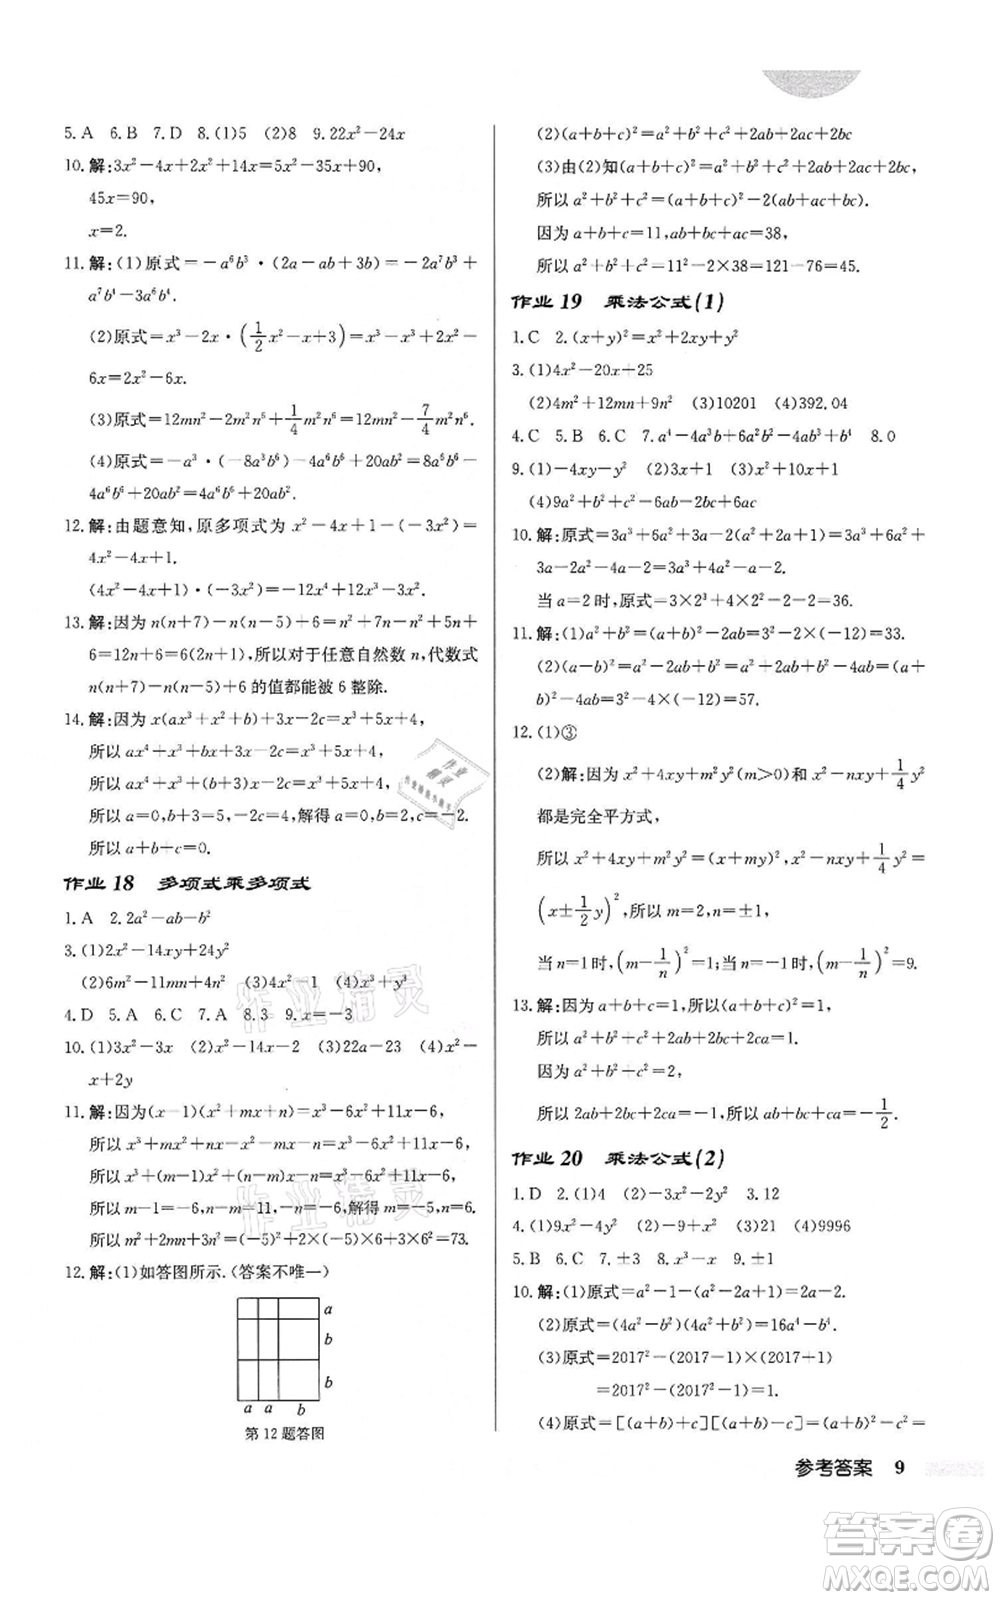 5. A 6. B 7. D 8. (1)5 (2)8 9. 22x²-24x
10. 解:3x²-4x+2x²+14x=5x²-35x+90,
45x=90,
x=2.
11. 解:(1)原式=-a⁶b³·(2a-ab+3b)=-2a⁷b³+
a⁷b⁴-3a⁶b⁴.
(2)原式=x³-2x·(1/2x²-x+3)=x³-x³+2x²-
6x=2x²-6x.
(3)原式=12mn²-2m²n⁶+1/4m²n⁶=12mn²-7/4m²n⁶.
(4)原式=-a³·(-8a³b⁶)-4a⁶b⁶+20ab²=8a⁶b⁶-
4a⁶b⁶+20ab²=4a⁶b⁶+20ab².
12. 解:由题意知,原多项式为 x²-4x+1-(-3x²)=
4x²-4x+1.
(4x²-4x+1)·(-3x²)=-12x⁴+12x³-3x².
13. 解:因为 n(n+7)-n(n-5)+6=n²+7n-n²+5n+
6=12n+6=6(2n+1),所以对于任意自然数 n,代数式
n(n+7)-n(n-5)+6 的值都能被 6 整除.
14. 解:因为 x(ax³+x²+b)+3x-2c=x³+5x+4,
所以 ax⁴+x³+bx+3x-2c=x³+5x+4,
所以 ax⁴+x³+(b+3)x-2c=x³+5x+4,
所以 a=0,b+3=5,-2c=4,解得 b=2,c=-2.
所以 a+b+c=0.
作业 18 多项式乘多项式
1. A 2. 2a²-ab-b²
3. (1)2x²-14xy+24y²
(2)6m²-11mn+4n² (3)4x²-1 (4)x³-1
4. D 5. A 6. C 7. A 8. 3 9. x=-3
10. (1)3x²-3x (2)x²-14x-2 (3)22a-23 (4)x²-
x+2y
11. 解:因为(x-1)(x²+mx+n)=x³-6x²+11x-6,
所以 x³+mx²+nx-x²-mx-n=x³-6x²+11x-6,
所以 x³+(m-1)x²+(n-m)x-n=x³-6x²+11x-6,
所以 m-1=-6,n-m=11,-n=-6,解得 m=-5,n=6.
所以 m²+2mn+n²=(-5)²+2×(-5)×6+6²=73.
12. 解:(1)如答图所示.(答案不唯一)
a
b
b
a a b
第 12 题答图
(2)(a+b+c)²=a²+b²+c²+2ab+2ac+2bc
(3)由(2)知(a+b+c)²=a²+b²+c²+2ab+2ac+2bc,
所以 a²+b²+c²=(a+b+c)²-2(ab+ac+bc).
因为 a+b+c=11,ab+bc+ac=38,
所以 a²+b²+c²=11²-2×38=121-76=45.
作业 19 乘法公式(1)
1. C 2. (x+y)²=x²+2xy+y²
3. (1)4x²-20x+25
(2)4m²+12mn+9n² (3)10201 (4)392.04
4. C 5. B 6. C 7. a⁴-4a³b+6a²b²-4ab³+b⁴ 8. 0
9. (1)-4xy-y² (2)3x+1 (3)x²+10x+1
(4)9a²+b²+c²-6ab-2bc+6ac
10. 解:原式=3a³+6a²+3a-2(a²+2a+1)=3a³+6a²+
3a-2a²-4a-2-4a²+a+2=3a³.
当 a=2 时,原式=3×2³+4×2²-2-2=36.
11. 解:(1)a²+b²=(a+b)²-2ab=3²-2×(-12)=33.
(2)(a-b)²=a²-2ab+b²=a²+2ab+b²-4ab=(a+
b)²-4ab=3²-4×(-12)=57.
12. (1)③
(2)解:因为 x²+4xy+m²y²(m>0)和 x²-nxy+1/4y²
都是完全平方式,
所以 x²+4xy+m²y²=(x+my)²,x²-nxy+1/4y²=
(x±1/2y)²,所以 m=2,n=±1,
当 n=1 时,(m-1/n)²=1;当 n=-1 时,(m-1/n)²=9.
13. 解:因为 a+b+c=1,所以(a+b+c)²=1,
所以 a²+b²+c²+2ab+2bc+2ca=1.
因为 a²+b²+c²=2,
所以 2ab+2bc+2ca=-1,所以 ab+bc+ca=-1/2.
作业 20 乘法公式(2)
1. D 2. (1)4 (2)-3x²-2y² 3. 12
4. (1)9x²-4y² (2)-9+x² (3)21 (4)9996
5. B 6. C 7. ±3 8. x³-x 9. ±1
10. 解:(1)原式=a²-1-(a²-2a+1)=2a-2.
(2)原式=(4a²-b²)(4a²+b²)=16a⁴-b⁴.
(3)原式=2017²-(2017-1)×(2017+1)
=2017²-(2017²-1)=1.
(4)原式=[(a+b)+c][(a+b)-c]=(a+b)²-c²=
参考答案 9
作业精灵
作业精灵
答案卷
MXQE.COM